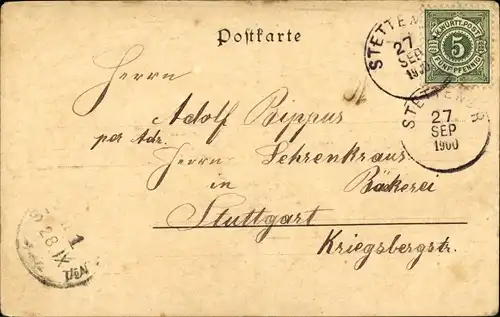 Postkarte
K. WÜRTT. POST
5
FÜNF PFENNIG
STETTEN
27
SEP
1900
STETTEN
27
SEP
1900
Herrn
Adolf Bippus
per Adr.
Herrn Lehrenkraus
Bäckerei
in
Stuttgart
Kriegsbergstr.
28 IX